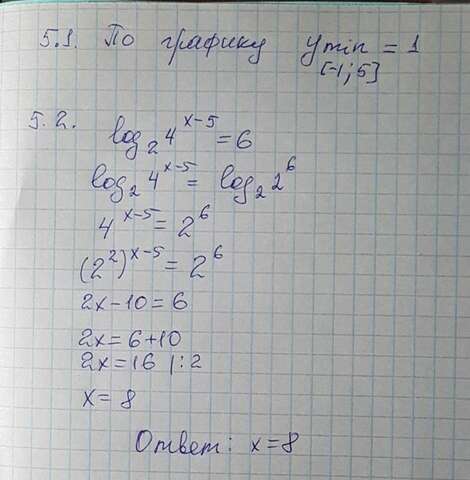 5.1. По графику ymin = 1
[-1; 5]
5.2.
log₂4^(x-5) = 6
log₂4^(x-5) = log₂2⁶
4^(x-5) = 2⁶
(2²)^(x-5) = 2⁶
2x-10 = 6
2x = 6+10
2x = 16 |:2
x = 8
Ответ: x=8